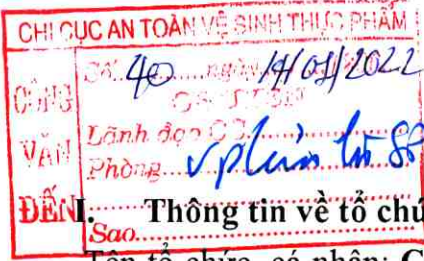 CHI CỤC AN TOÀN VỆ SINH THỰC PHẨM
CÔNG VĂN ĐẾN
Số: 40 ngày 14/01/2022
Lãnh đạo CC
Phòng
Sao
I. Thông tin về tổ chứ
Tên tổ chức, cá nhân: C